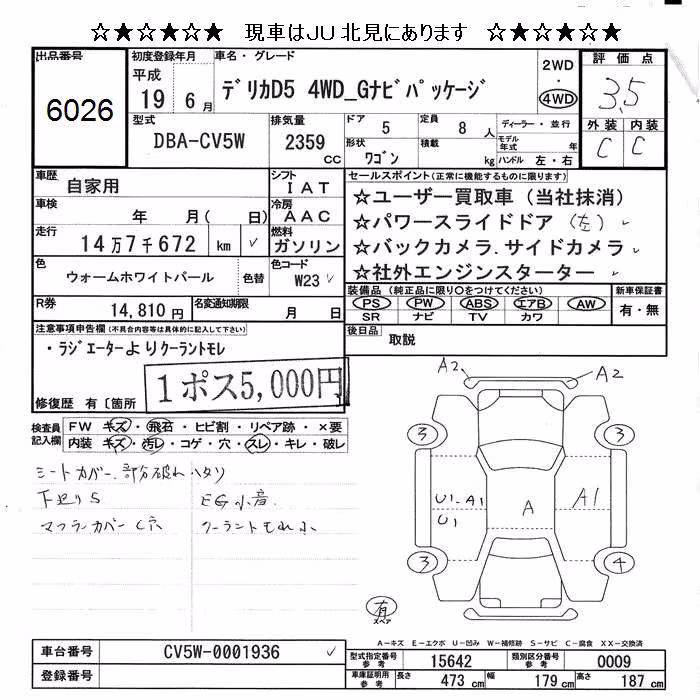 ☆★☆★☆★ 現車はJU北見にあります ☆★☆★☆★
出品番号 初度登録年月 車名・グレード 評価点
6026 平成 19 6月 デリカD5 4WD_Gナビパッケージ 2WD・4WD 3.5
型式 排気量 ドア 定員 ディーラー・並行 外装 内装
DBA-CV5W 2359 cc 5 8人 モデル年式 年 C C
形状 ワゴン 積載 kg ハンドル 左・右
車歴 自家用 シフト IAT セールスポイント(正常に機能するものに限ります)
車検 年 月( 日) 冷房 AAC ☆ユーザー買取車(当社抹消)
☆パワースライドドア(左)
走行 14万7千672 km 燃料 ガソリン ☆バックカメラ.サイドカメラ
色 ウォームホワイトパール 色替 色コード W23 ☆社外エンジンスターター
装備品(純正品に限り○をつけてください) 新車保証書
R券 14,810円 名変通知期限 月 日 PS PW ABS エアB AW 有・無
SR ナビ TV カワ
注意事項申告欄(不具合内容等は具体的に記入して下さい) 後日品 取説
・ラジエーターよりクーラントモレ
1ポス5,000円
修復歴 有〔箇所
検査員記入欄 FW キズ・飛石・ヒビ割・リペア跡・×要
内装 キズ・汚レ・コゲ・穴・スレ・キレ・破レ
シートカバー、部分破れ ハタリ
下廻りS EG小音.
マフラーカバーC穴 クーラントもれ小
A2 A2
3 3
U1.A1 A A1
U1
3 4
有 スペア
A-キズ E-エクボ U-凹み W-補修跡 S-サビ C-腐食 XX-交換済
車台番号 CV5W-0001936 型式指定番号 参考 15642 類別区分番号 参考 0009
登録番号 車庫証明用 参考 長さ 473 cm 幅 179 cm 高さ 187 cm